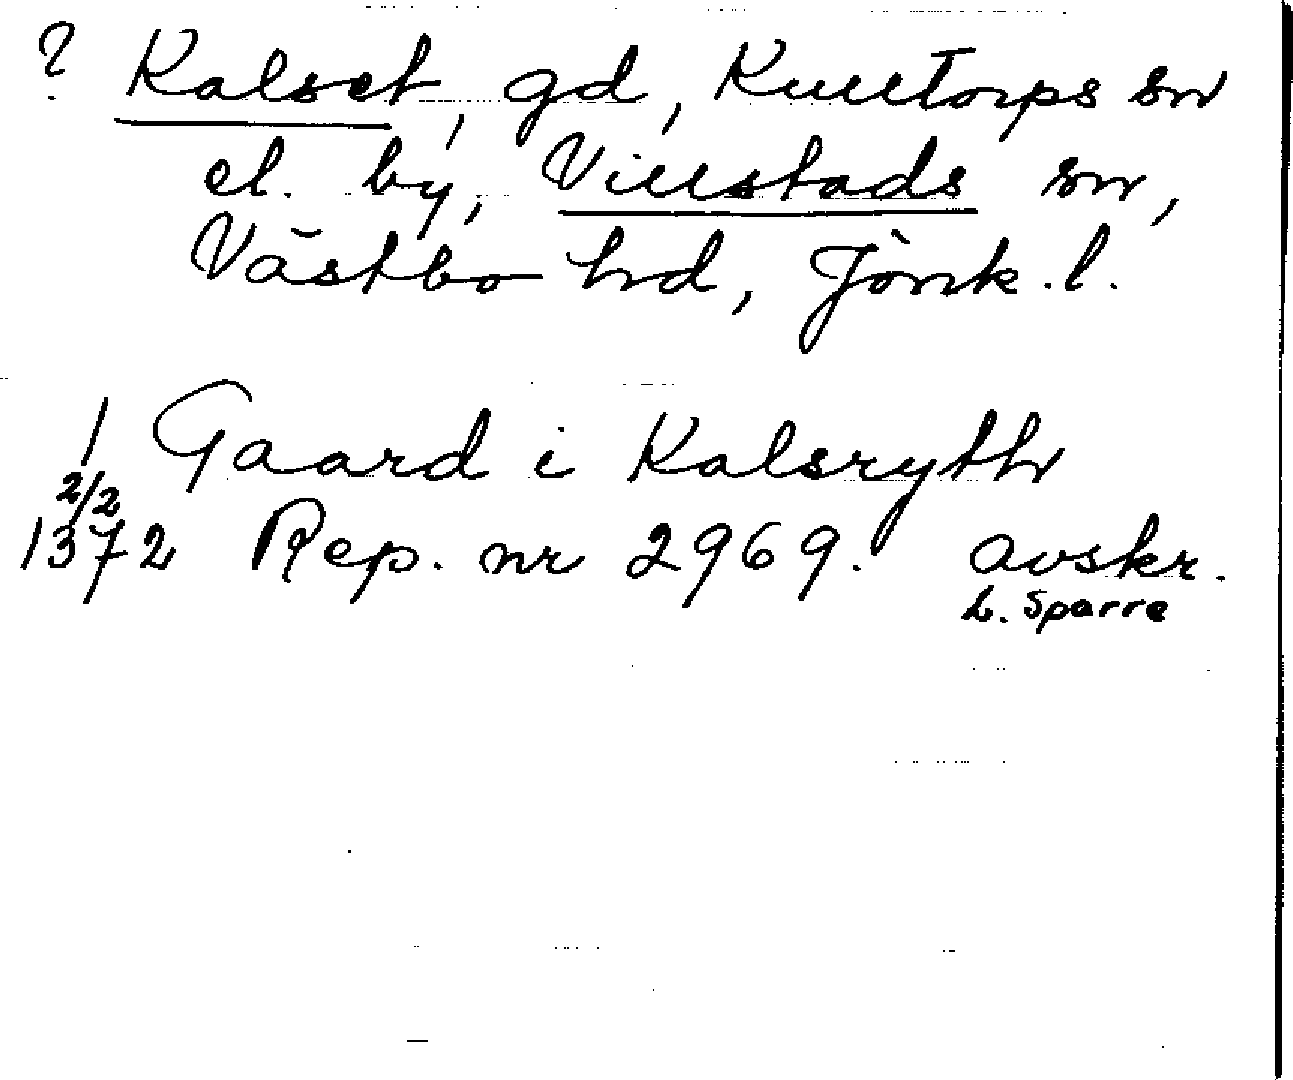 ? Kalset, gd, Kulltorps sn
el. by, Villstads sn,
Västbo hd, Jönk. l.
1 Gaard i Kalsryth
2/2
1372 Rep. nr 2969. avskr.
L. Sparre